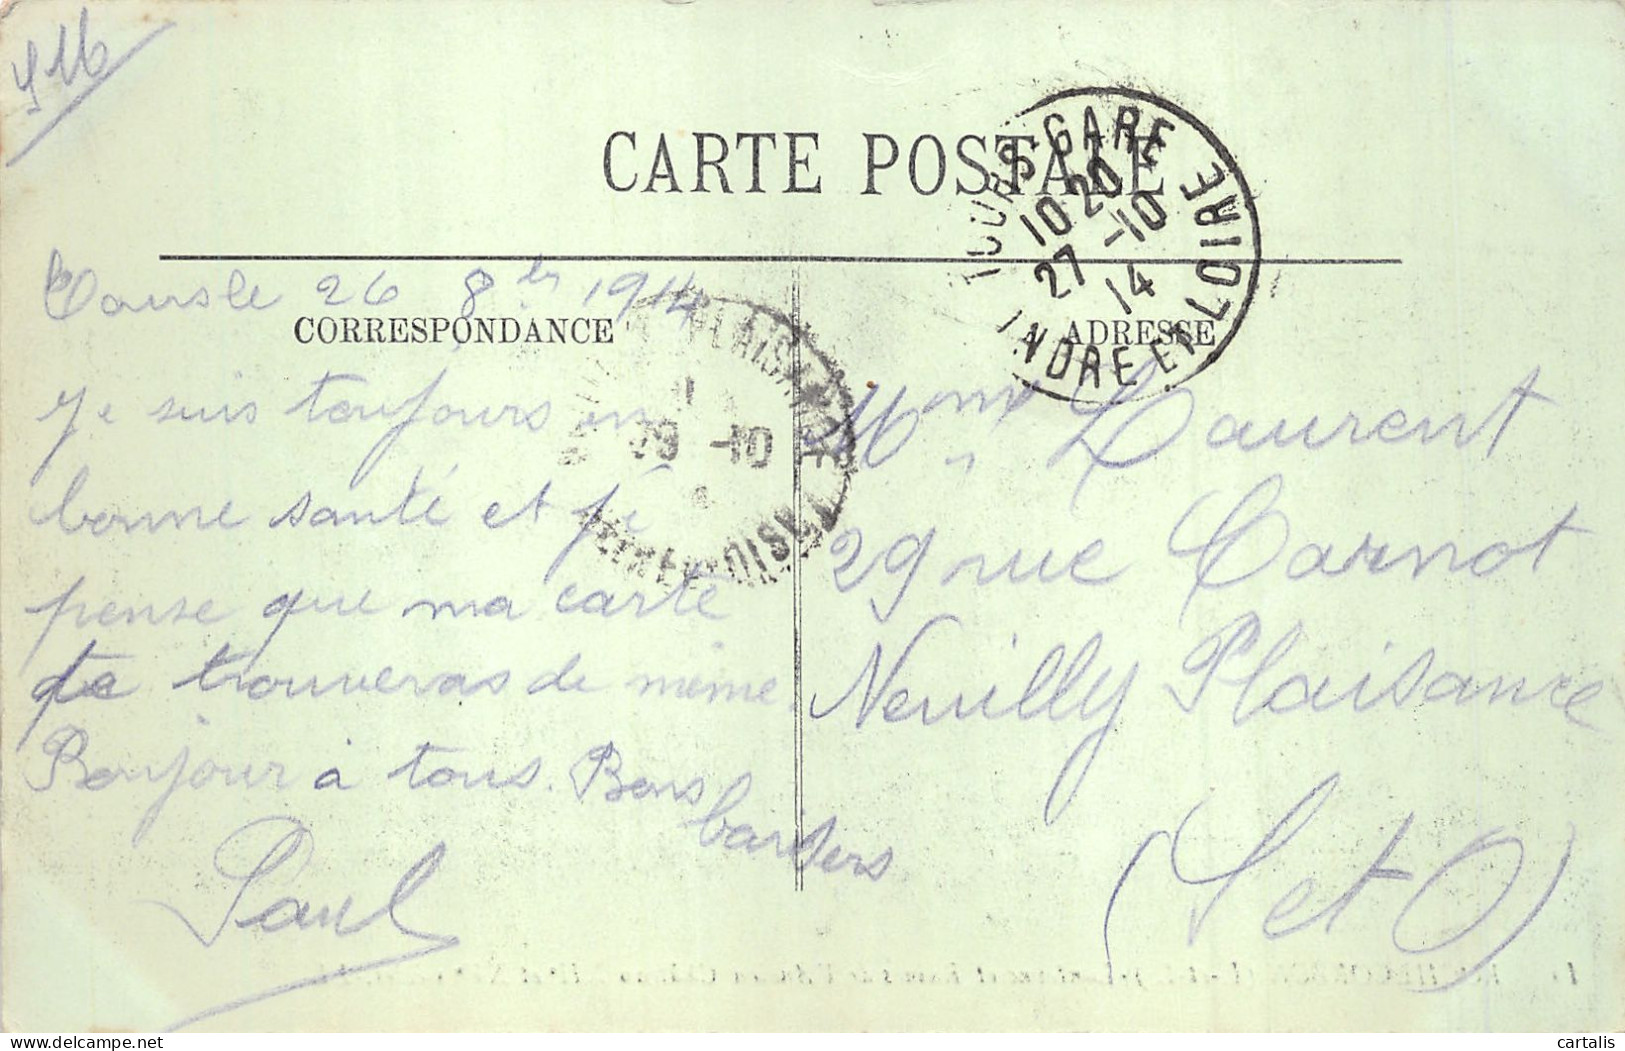 SM
CARTE POSTALE
TOURS-GARE
10 20
27 -10
14
INDRE ET LOIRE
le 26 8bre 1914
CORRESPONDANCE
ADRESSE
PLAISANCE
29 -10
OISE
Je suis toujours en
bonne santé et je
pense que ma carte
te trouveras de même
Bonjour à tous. Bons
baisers
Paul
Mme Laurent
29 rue Carnot
Neuilly Plaisance
(S et O)
cartalis